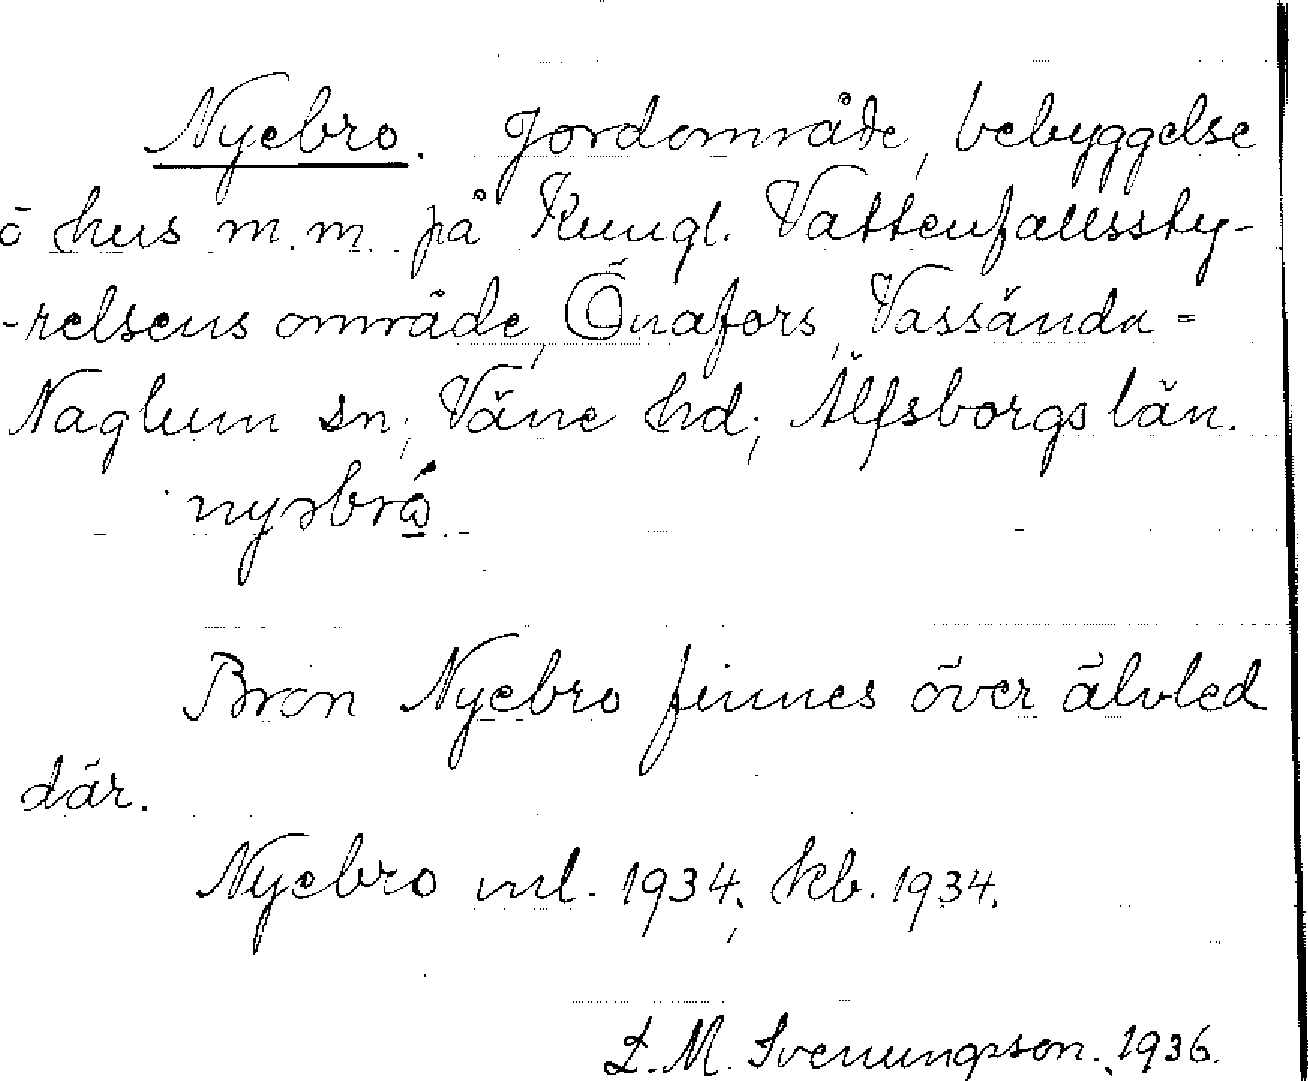 Nyebro. Jordområde, bebyggelse
ō hus m.m. på Kungl. Vattenfallssty-
-relsens område, Önafors, Vassända-
Naglum sn; Väne hd; Älfsborgs län.
Bron Nyebro finnes över älvled
där.
Nyebro ml. 1934; kb. 1934.
L.M. Svenungsson. 1936.